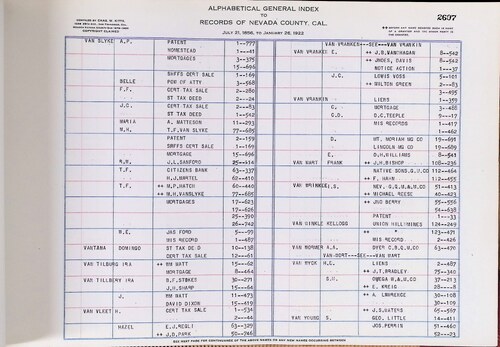 ALPHABETICAL GENERAL INDEX
TO
RECORDS OF NEVADA COUNTY, CAL.
JULY 21, 1856, TO JANUARY 26, 1922
COPYRIGHT CLAIMED
2607
VAN SLYKE A.P. PATENT 1--777
HOMESTEAD 1---41
MORTGAGES 3--375
15--696
SHFFS CERT SALE 1--169
BELLE POW OF ATTY 3--568
F.F. CERT TAX SALE 2--280
ST TAX DEED 2---24
J.C. CERT TAX SALE 2---83
ST TAX DEED 1--542
MARIA A. MATTESON 11--293
M.H. T.F.VAN SLYKE 77--605
PATENT 2--159
SHFFS CERT SALE 1--169
MORTGAGE 15--696
R.N. J.L.SANFORD 25--614
T.F. CITIZENS BANK 63--337
H.J.HARTEL 62--410
T.F. ++ M.P.HATCH 60--440
++ M.H.VANSLYKE 77--605
MORTGAGES 17--623
17--626
25--390
26--742
W.E. JAS FORD 5---99
MIS RECORD 1--487
VANTANA DOMINGO ST TAX DEED 10--138
CERT TAX SALE 12--61
VAN TILBURG IRA ++ WM WATT 15---62
MORTGAGE 8--464
VAN TILLBURY IRA B.F.STOKES 30--271
J.H.SHARP 15---64
J. WM WATT 11--473
DAVID DIXON 15--419
VAN VLEET H. CERT TAX SALE 1--534
2---46
HAZEL E.J.REGLI 63--329
++ J.B.PARK 58--746
VAN VRANKEN---SEE---VAN VRANKIN
VAN VRANKEN E. ++ J.B.VANCHAGAN 8--542
++ JNOES, DAVIS 8--542
NOTICE ACTION 1---37
J.C. LOWIS VOSS 5--101
++ WALTON GREEN 2---83
3--455
VAN VRANKIN LIENS 1--359
C. MORTGAGE 3--488
C.D. D.C.TEEPLE 9---17
MIS RECORDS 1--417
1--462
D. MT. MORIAH MG CO 19--691
LINCOLN MG CO 19--689
E. D.H.WILLIAMS 8--541
VAN WART FRANK ++ J.H.BISHOP 108--236
NATIVE SONS.G.M.CO 112--464
++ F. HAHN 112--455
VAN WRINKLE I.S. NEV. G.Q.M.&M.CO 51--413
++ MICHAEL REESE 40--623
++ JNO BERRY 55--556
54--638
PATENT 1---33
VAN WINKLE KELLOGG UNION HILLMINES 124--249
++ " 123--471
MIS RECORD 2--426
VAN WORMER A.A. OVER C.B.Q.M.CO 63--470
VAN-WORT---SEE---VAN WART
VAN WYCK H.L. LIENS 2--487
++ J.T.BRADLEY 75--340
S.H. OMEGA W.&M.CO 37--213
++ E. KREIG 28---8
++ A. LAWRENCE 30--108
30--109
++ J.S.WATERS 65--587
VAN YOUNG S. GEO. LITTLE 14--411
JOS.PERRIN 51--460
52---23